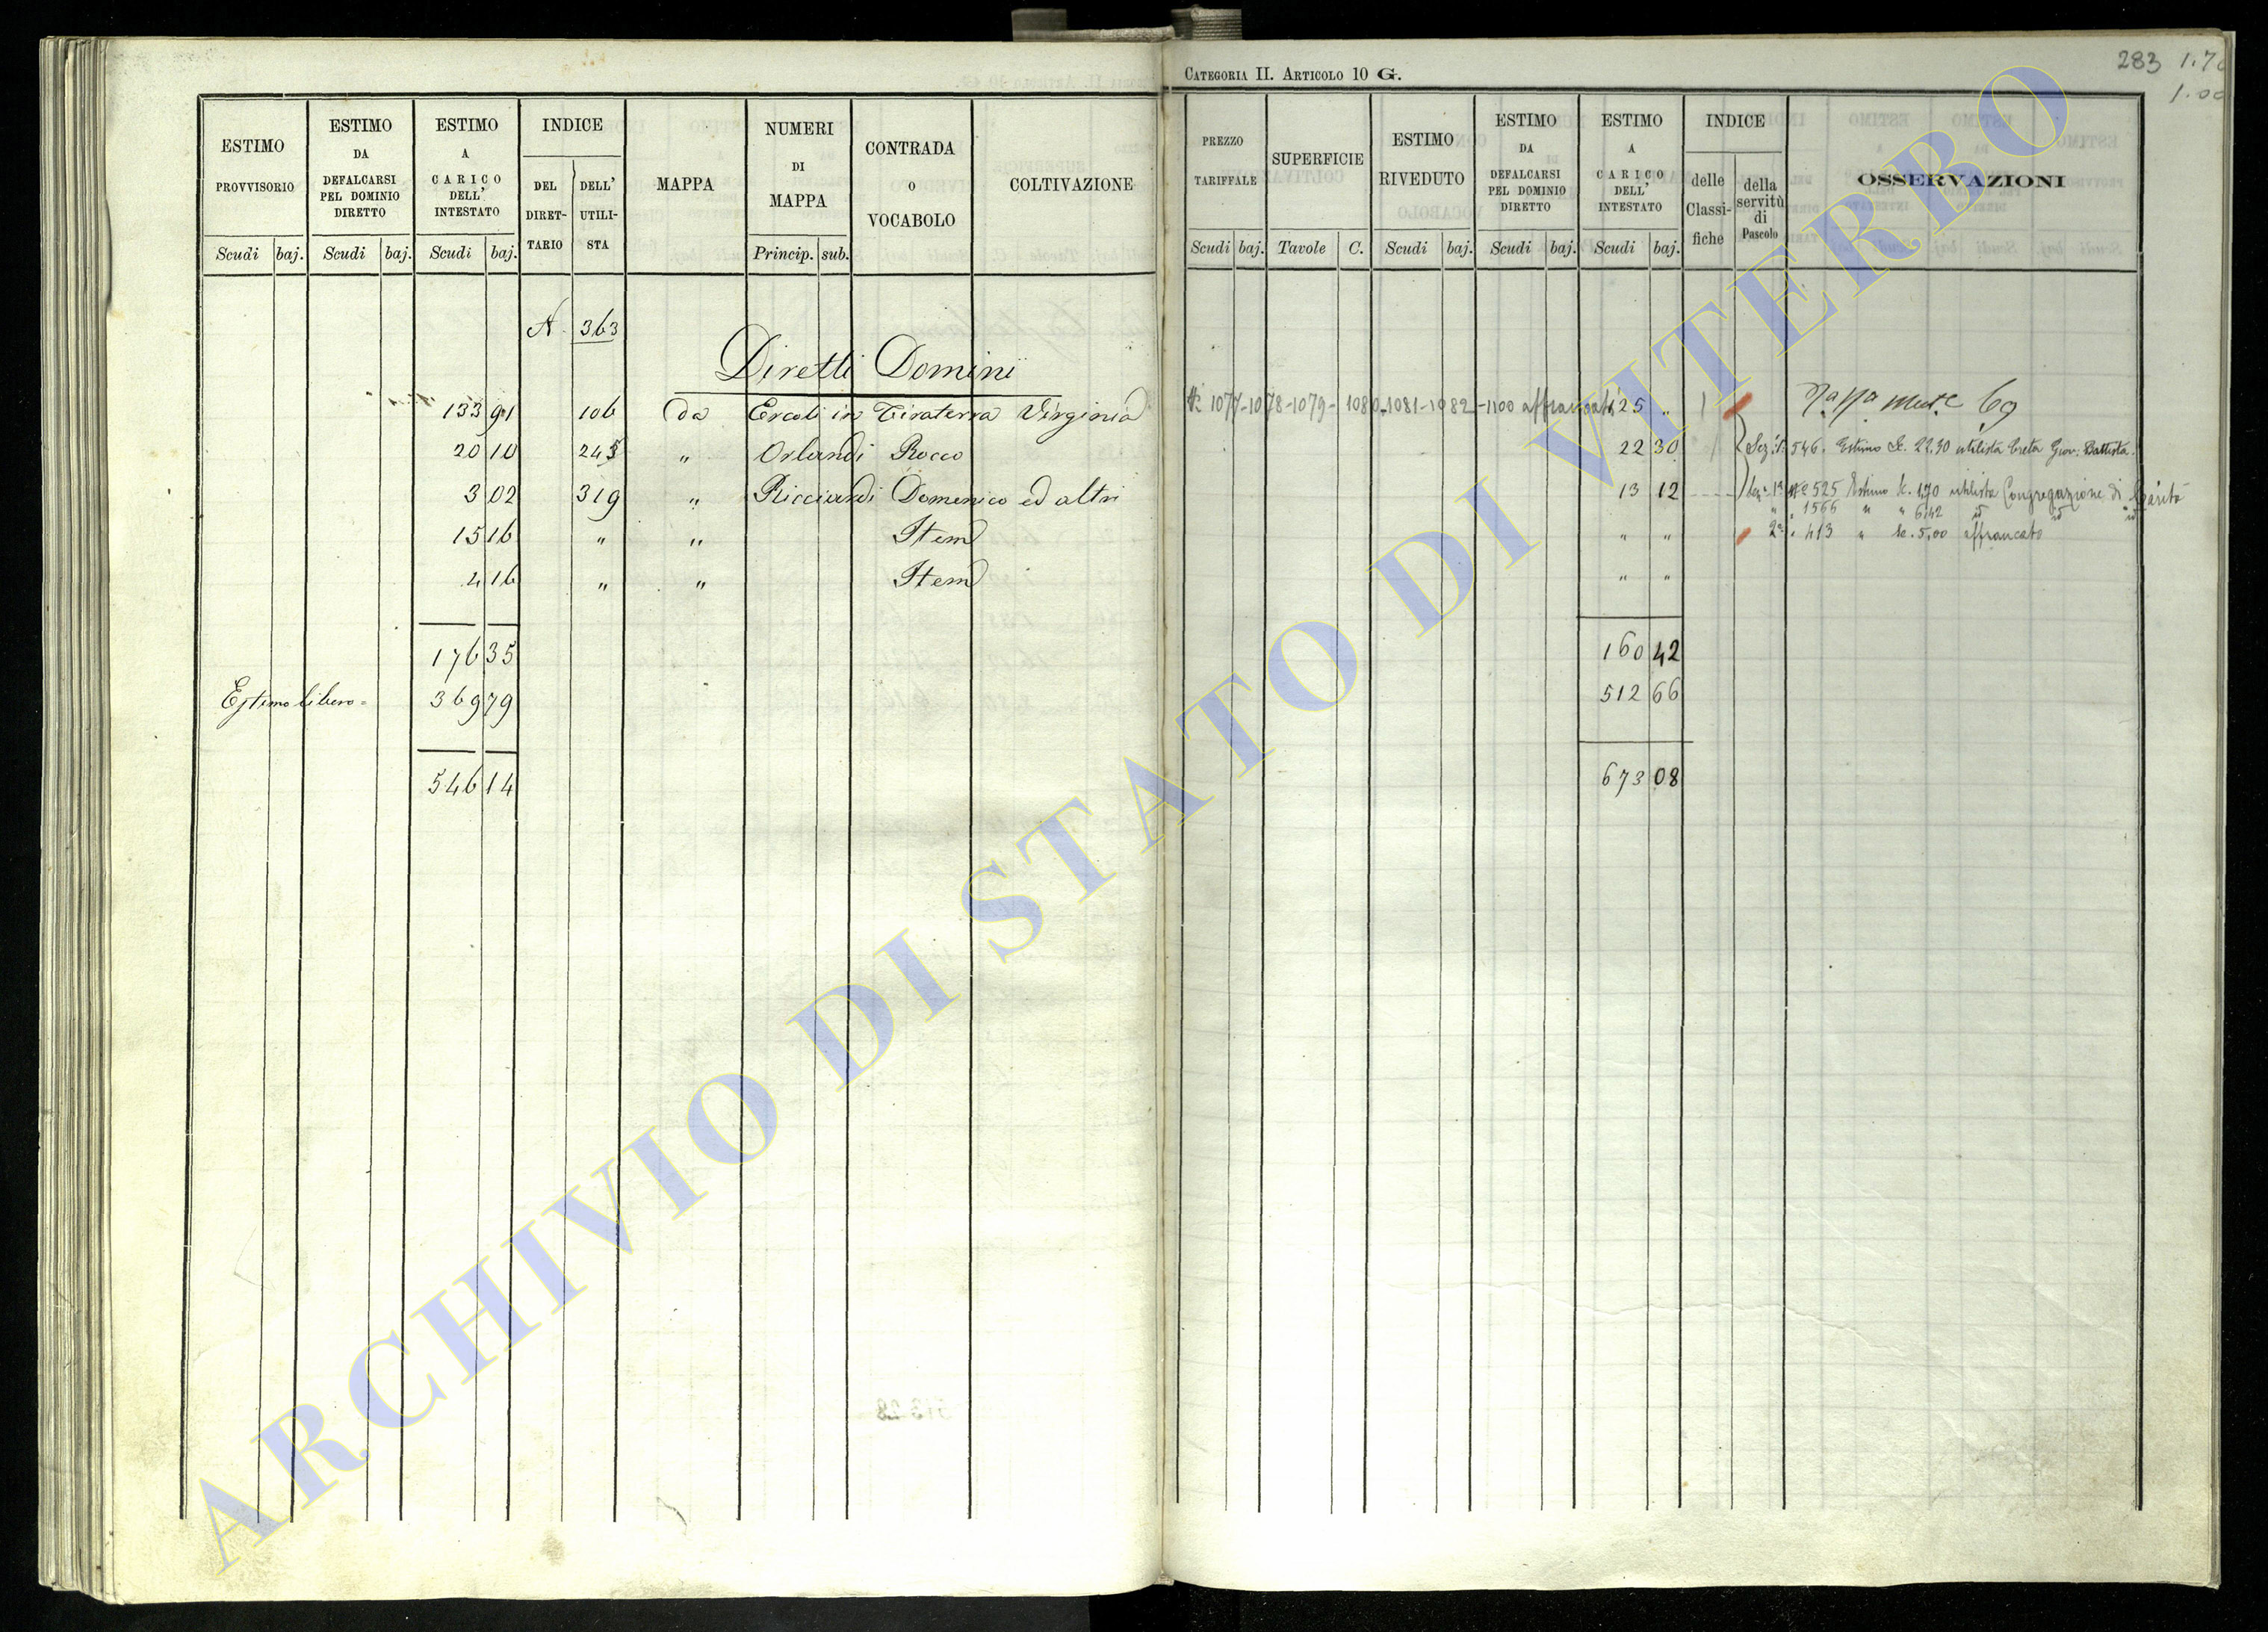 CATEGORIA II. ARTICOLO 10 G.
283 1.70
1.00
ESTIMO PROVVISORIO
Scudi baj.
ESTIMO DA DEFALCARSI PEL DOMINIO DIRETTO
Scudi baj.
ESTIMO A CARICO DELL' INTESTATO
Scudi baj.
INDICE
DEL DIRETTARIO
DELL' UTILISTA
MAPPA
NUMERI DI MAPPA
Princip. sub.
CONTRADA O VOCABOLO
COLTIVAZIONE
PREZZO TARIFFALE
Scudi baj.
SUPERFICIE
Tavole C.
ESTIMO RIVEDUTO
Scudi baj.
ESTIMO DA DEFALCARSI PEL DOMINIO DIRETTO
Scudi baj.
ESTIMO A CARICO DELL' INTESTATO
Scudi baj.
INDICE
delle Classifiche
della servitù di Pascolo
OSSERVAZIONI
A 363
Diretti Domini
133 91 106 da Ercoli in Tiraterra Virginia N° 1077-1078-1079-1080-1081-1082-1100 affrancati 125 "
20 10 245 " Orlandi Rocco 22 30 Sez. 1ª 546. Estimo Sc. 22.30 utilista Creta Giov: Battista.
3 02 319 " Ricciardi Domenico ed altri 13 12 Sez. 1ª N° 525 Estimo Sc. 1,70 utilista Congregazione di Carità
" " 1566 " " 6,42 id id id
15 16 " " Item " " 2ª " 413 " Sc. 5,00 affrancato
4 16 " " Item " "
176 35 160 42
Estimo libero = 369 79 512 66
546 14 673 08
ARCHIVIO DI STATO DI VITERBO